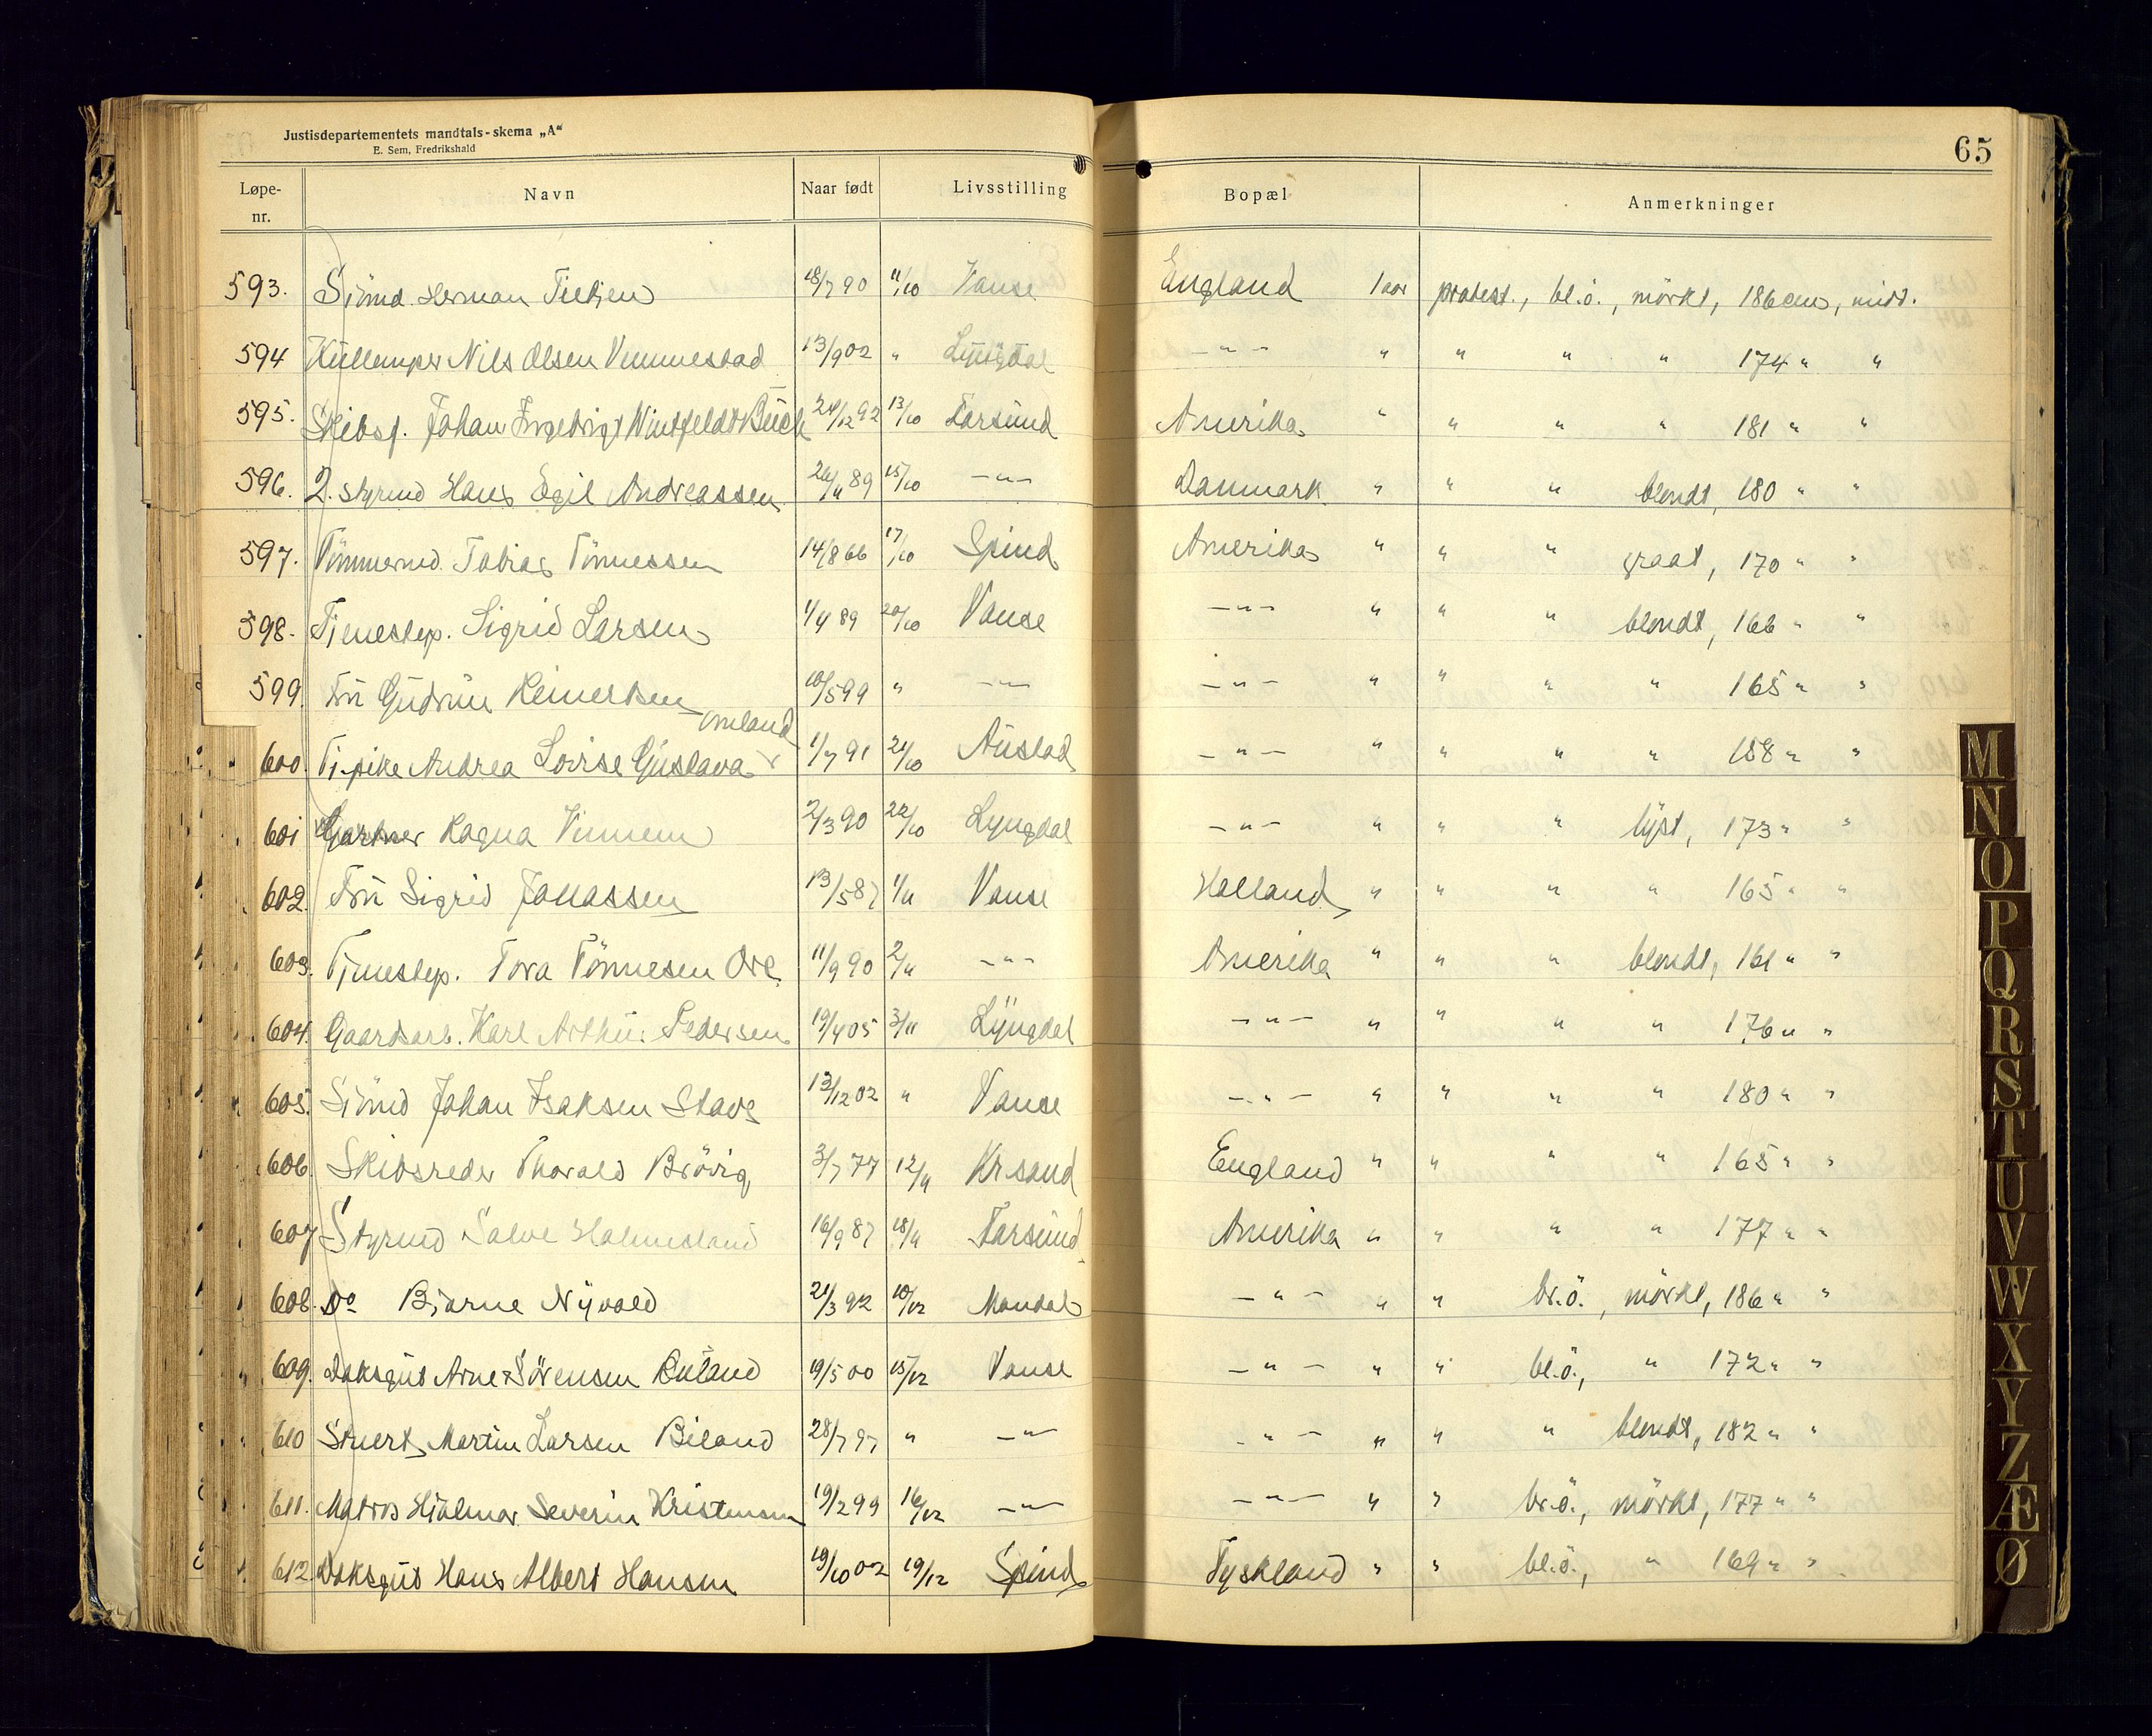 Justisdepartementets mandtals-skema „A“
E. Sem, Fredrikshald
65
Løpe-nr. Navn Naar født Livsstilling Bopæl Anmerkninger
593. Sjömd. Herman Tietjen 18/7 90 11/10 Vanse England 1 aar protest., bl.ö., mörkt, 186 cm, midd.
594 Nils Olsen Vemmestad 13/9 02 " Lyngdal -"- " " " " 174 " "
595. Skibsf. Johan Ingebrigt Wintfeldt Buch 24/12 92 13/10 Farsund Amerika " " " " 181 " "
596. 2. styrmd Hans Egil Andreassen 15/10 -"- Danmark " " " blondt, 180 " "
597. Tömmermd. Tobias Tönnessen 14/8 66 17/10 Spind Amerika " " " graat, 170 " "
598. Tjenestep. Sigrid Larsen 1/4 89 20/10 Vanse -"- " " " blondt, 166 " "
599. Fru Gudrun Reinertsen 10/5 99 " -"- -"- " " " " 165 " "
Omland
600. Tj.pike Andrea Lovise Gustava 1/7 91 21/10 Austad -"- " " " " 158 " "
601 Gartner Ragna Vinnem 2/3 90 22/10 Lyngdal -"- " " " lyst, 173 " "
602. Fru Sigrid Jonassen 13/5 87 1/11 Vanse Holland " " " " 165 " "
603. Tjenestep. Tora Tönnesen Ore 11/9 90 2/11 -"- Amerika " " " blondt, 161 " "
604. Gaardsarb. Karl Arthur Pedersen 19/4 05 3/11 Lyngdal -"- " " " " 176 " "
605. Sjömd Johan Isaksen Stave 13/12 02 " Vanse -"- " " " " 180 " "
606. Skibsreder Thorvald Brövig 3/7 77 12/11 Kr.sand England " " " " 165 " "
607 Styrmd Salve Holmesland 16/9 87 18/11 Farsund Amerika " " " " 177 " "
608. Do Bjarne Nyvold 21/3 92 10/12 Mandal -"- " " br.ö., mörkt, 186 " "
609. Daksgut Arne Sörensen 19/5 00 15/12 Vanse -"- " " bl.ö., " 172 " "
610 Stuert Martin Larsen Beland 28/7 97 " -"- -"- " " " blondt, 182 " "
611. Matros Hjalmar Severin Kristensen 19/2 99 16/12 -"- -"- " " br.ö., mörkt, 177 " "
612. Daksgut Hans Albert Hansen 19/10 02 19/12 Spind Tyskland " " bl.ö., " 169 " "
M
N
O
P
Q
R
S
T
U
V
W
X
Y
Z
Æ
Ø